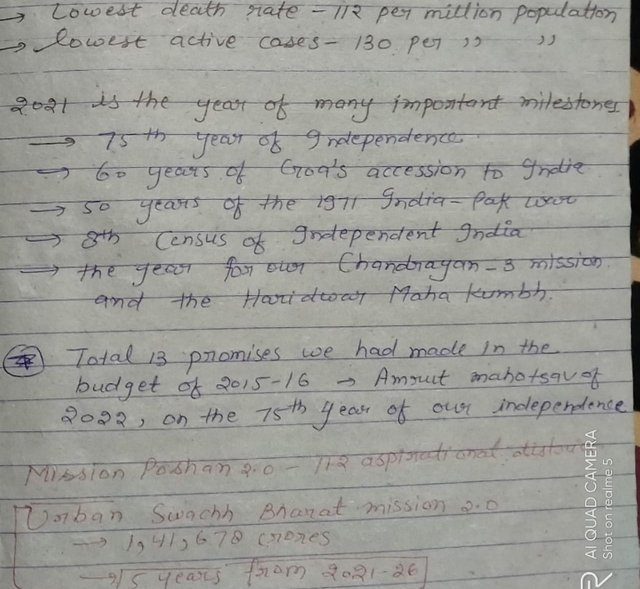 → Lowest death rate - 112 per million population
→ lowest active cases - 130 per ,, ,,
2021 is the year of many important milestones
→ 75th year of Independence
→ 60 years of Goa's accession to India
→ 50 years of the 1971 India - Pak war
→ 8th Census of Independent India
→ the year for our Chandrayan - 3 mission
and the Haridwar Maha Kumbh.
Total 13 promises we had made in the
budget of 2015-16 → Amrut mahotsav of
2022, on the 75th year of our independence
Mission Poshan 2.0 - 112 aspirational
Urban Swachh Bharat mission 2.0
→ 1,41,678 crores
→ 5 years from 2021-26
AI QUAD CAMERA
Shot on realme 5